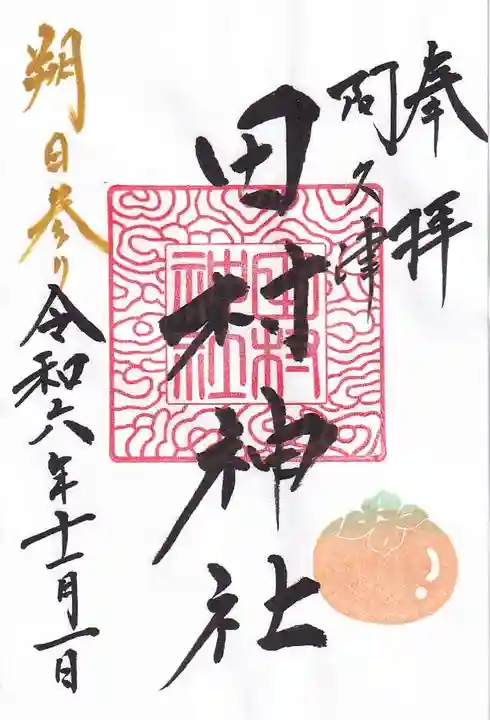 奉拝
阿久津
田村神社
田村
神社
朔日参り
令和六年十一月一日